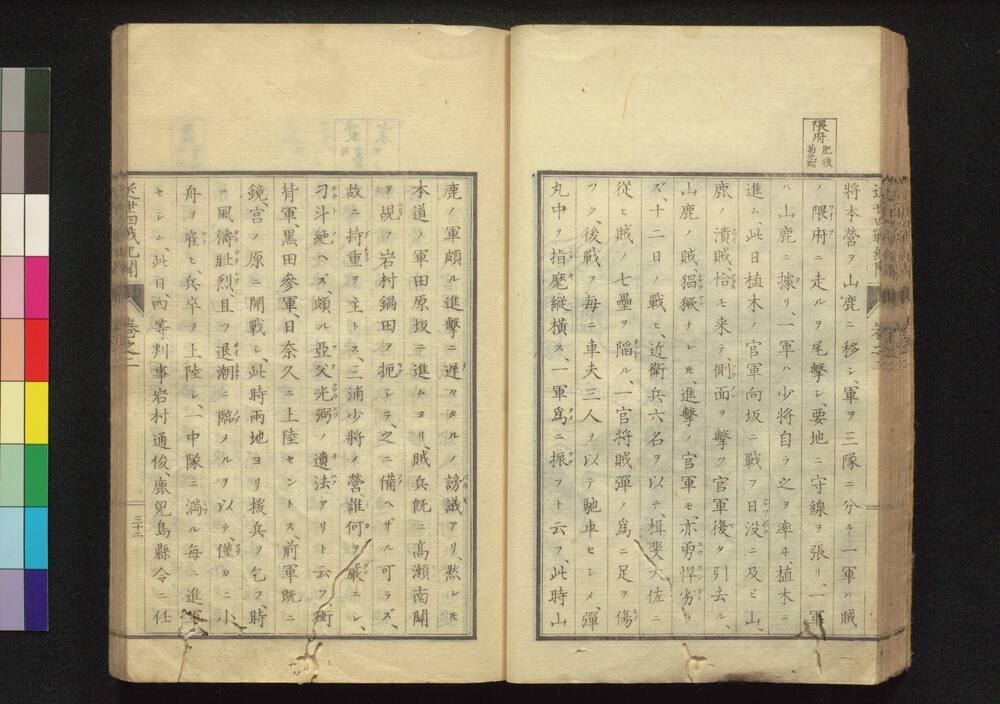 隈府 肥後
菊池郡
將本營ヲ山鹿ニ移シ、軍ヲ三隊ニ分チ一軍ハ賊
ノ隈府ニ走ルヲ尾擊シ、要地ニ守線ヲ張リ、一軍
ハ山鹿ニ據リ、一軍ハ少將自ラ之ヲ率ヰ、植木ニ
進ム、此日植木ノ官軍向坂ニ戰フ日没ニ及ビ山
鹿ノ潰賊、恰モ来テ、側面ヲ擊ツ官軍復タ引去ル、
山鹿ノ賊、猖獗ナレ𪜈、進擊ノ官軍モ亦勇悍劣ラ
ズ、十二日ノ戰ヒ、近衛兵六名ヲ以テ、揖斐大佐ニ
從ヒ賊ノ七壘ヲ陷ル、一官將賊彈ノ爲ニ足ヲ傷
ツク、後戰フ毎ニ車夫三人ヲ以テ馳車セシメ、彈
丸中ヲ指麾縱橫ス、一軍爲ニ振フト云フ、此時山
鹿ノ軍頗ル進擊ニ遅々タルノ謗議アリ、然レ𪜈
本道ノ軍田原坂ニ進ムヨリ、賊兵既ニ高瀬南關
ヲ覘フ岩村鍋田ヲ扼シテ、之ニ備ヘザル可ラズ、
故ニ持重ヲ主トス、三浦少將ノ營、誰何ヲ嚴ニシ、
刁斗絶ヘズ、頗ル亞父光弼ノ遺法アリト云フ衝
背軍、黒田參軍、日奈久ニ上陸セントス、前軍既ニ
鏡、宮ノ原ニ開戰シ、此時兩地ヨリ援兵ヲ乞フ、時
ニ風濤壯烈、且ツ退潮ニ臨メルヲ以テ、僅カニ小
舟ヲ雇ヒ、兵卒ヲ上陸シ、一中隊ニ満ル毎ニ進軍
セシム、此日、四等判事岩村通俊、鹿兒島縣令ニ任
卷之二
三十三